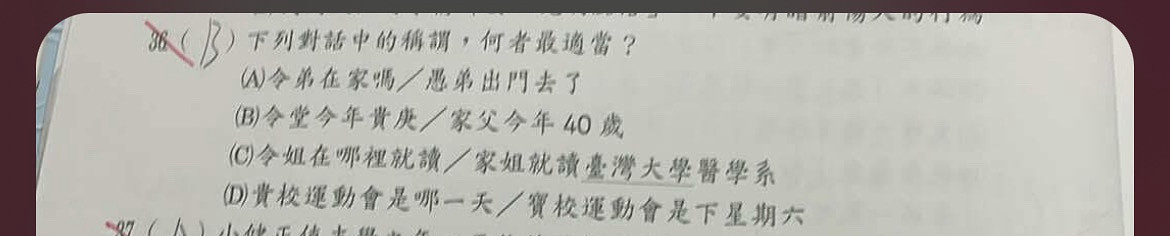 36 ( B ) 下列對話中的稱謂,何者最適當?
(A)令弟在家嗎/愚弟出門去了
(B)令堂今年貴庚/家父今年 40 歲
(C)令姐在哪裡就讀/家姐就讀臺灣大學醫學系
(D)貴校運動會是哪一天/寶校運動會是下星期六
37 ( A )